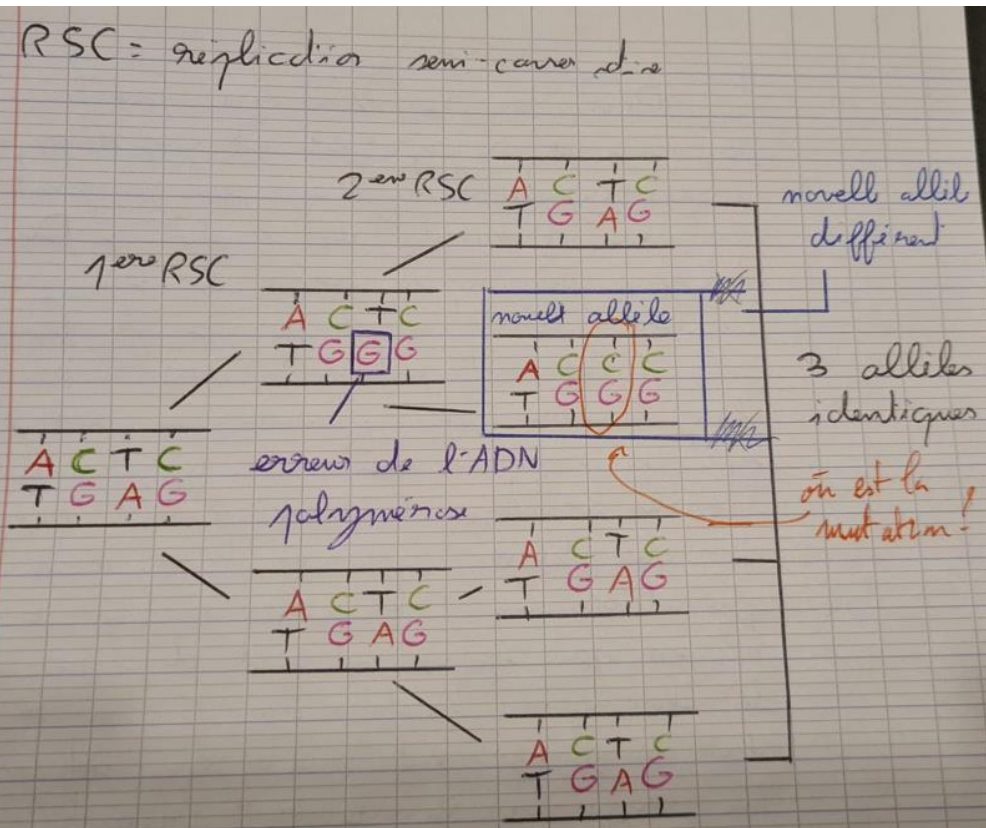 RSC = réplication semi-conservative
2eme RSC
A C T C
T G A G
nouvell allèl
différent
1ere RSC
A C T C
T G G G
nouvell allèle
A C C C
T G G G
3 allèles
identiques
A C T C
T G A G
erreur de l'ADN
polymérase
où est la
mutation!
A C T C
T G A G
A C T C
T G A G
A C T C
T G A G